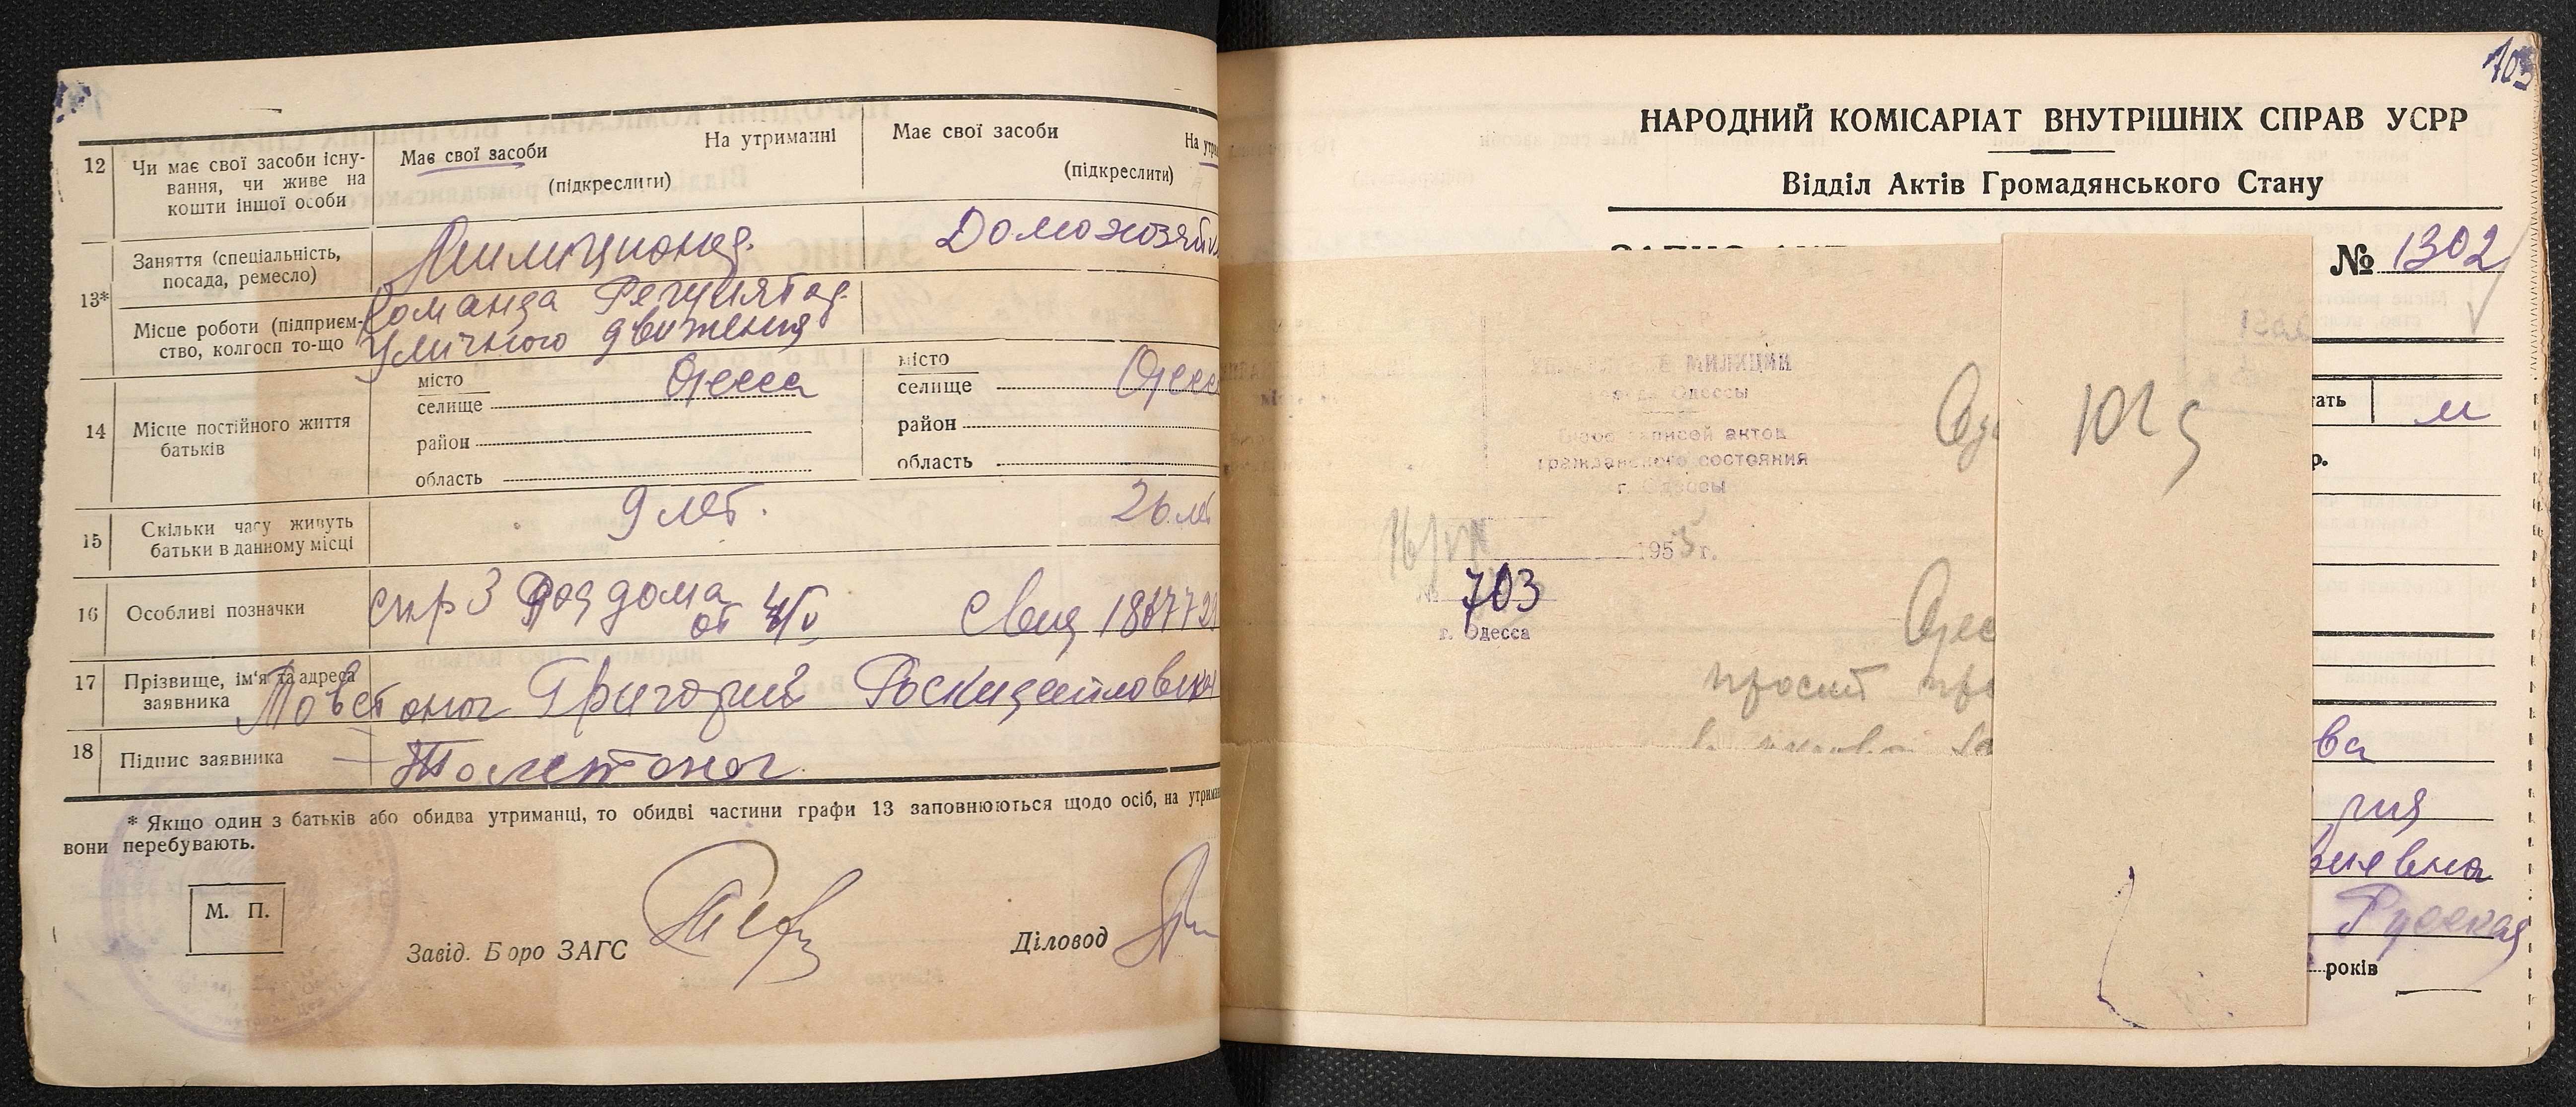 12
Чи має свої засоби існу-
вання, чи живе на
кошти іншої особи
Має свої засоби
На утриманні
(підкреслити)
Має свої засоби
На утри
(підкреслити)
13*
Заняття (спеціальність,
посада, ремесло)
Милиционер.
Домохозяйк
Місце роботи (підприєм-
ство, колгосп то-що
Команда Регулятор.
Уличного движения
14
Місце постійного життя
батьків
місто
селище
Одесса
район
область
місто
селище
Одесс
район
область
15
Скільки часу живуть
батьки в данному місці
9 лет.
26 лет
16
Особливі позначки
спр 3 Роддома
от
17
Прізвище, ім'я та адреса
заявника
Товстоног Григорий
18
Підпис заявника
Толстоног
* Якщо один з батьків або обидва утриманці, то обидві частини графи 13 заповнюються щодо осіб, на утриман
вони перебувають.
М. П.
Завід. Бюро ЗАГС
Діловод
703
НАРОДНИЙ КОМІСАРІАТ ВНУТРІШНІХ СПРАВ УСРР
Відділ Актів Громадянського Стану
№ 1302
МИЛИЦИИ
города Одессы
Бюро записей актов
гражданского состояния
г. Одессы
195 г.
703
г. Одесса
Одес
просит
тать
м
р.
ва
рия
Русская
років